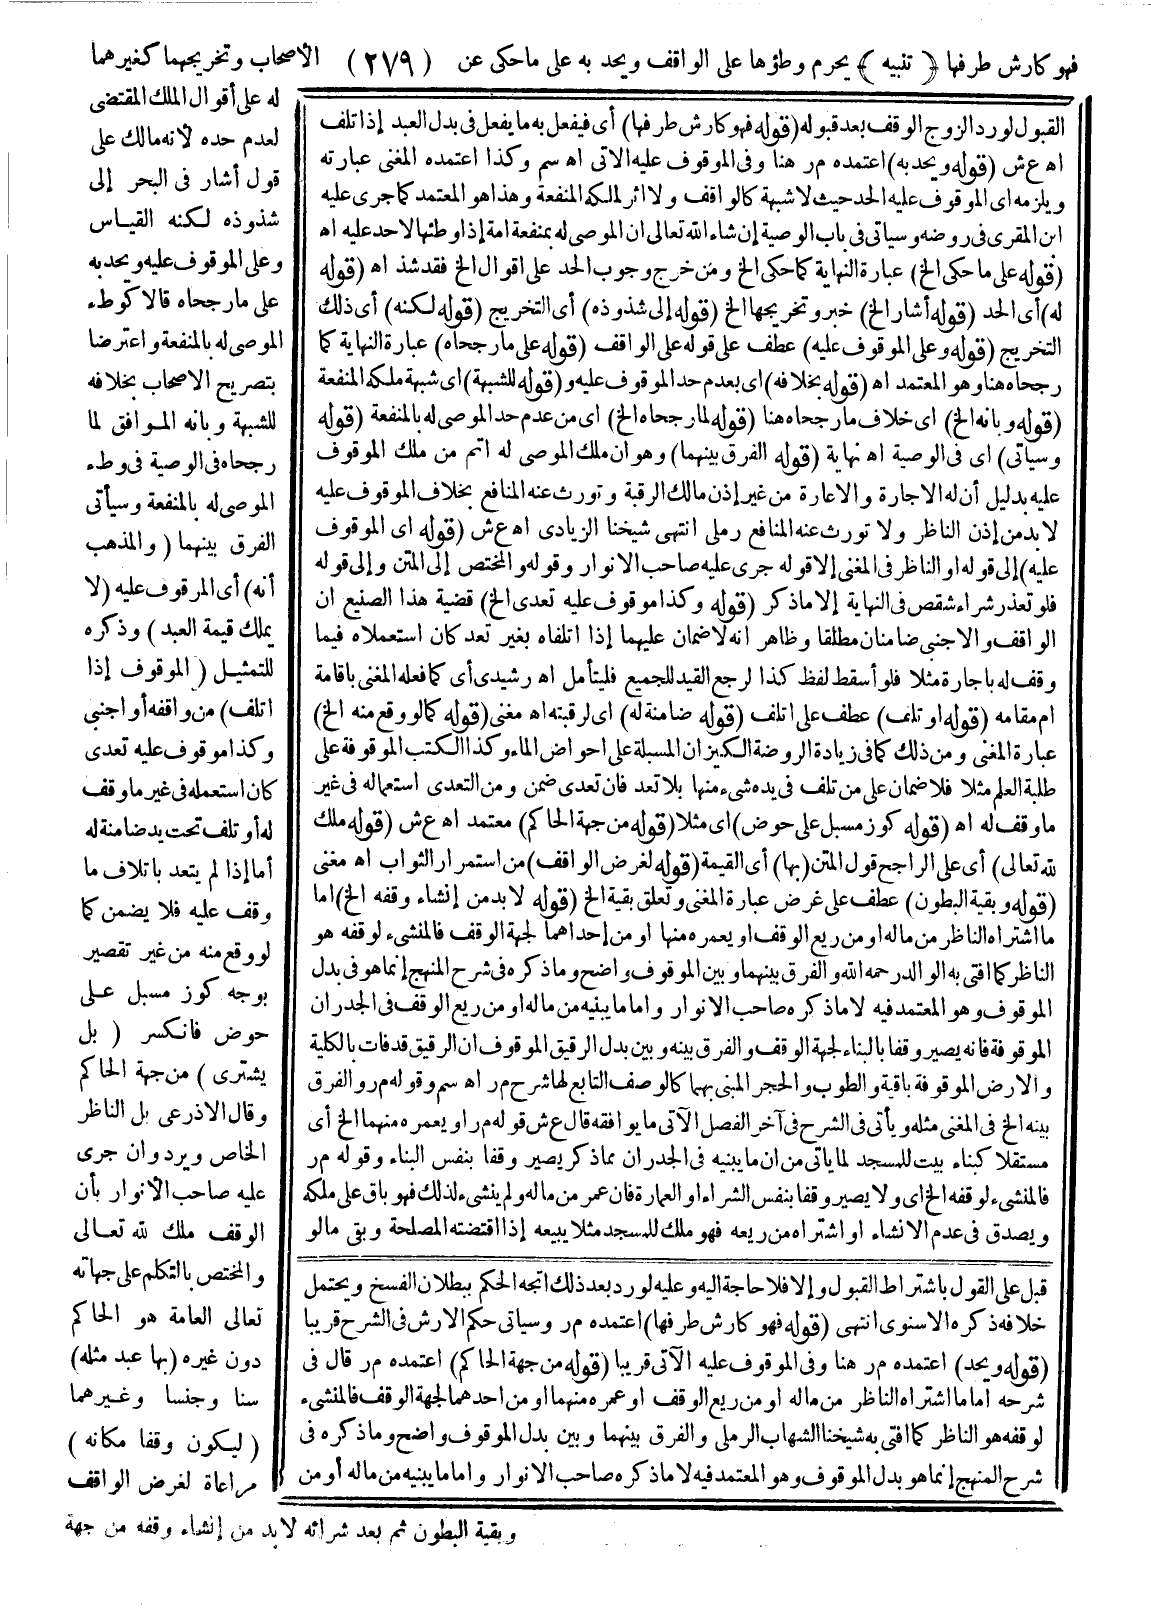 فهو كارش طرفها ﴿ تنبيه ﴾ يحرم وطؤها على الواقف ويحد به على ما حكى عن (٢٧٩) الأصحاب وتخريجهما كغيرهما
له على أقوال الملك المقتضى
لعدم حده لأنه مالك على
قول أشار فى البحر إلى
شذوذه لكنه القياس
وعلى الموقوف عليه ويحد به
على ما رجحاه قالا كوطء
الموصى له بالمنفعة واعترضا
بتصريح الاصحاب بخلافه
للشبهة وبانه الموافق لما
رجحاه فى الوصية فى وطء
الموصى له بالمنفعة وسيأتى
الفرق بينهما ( والمذهب
أنه) أى الموقوف عليه (لا
يملك قيمة العبد ) وذكره
للتمثيل ( الموقوف إذا
اتلف) من واقفه أو اجنبى
وكذا موقوف عليه تعدى
كان استعمله فى غير ما وقف
له أو تلف تحت يد ضامنة له
أما إذا لم يتعد باتلاف ما
وقف عليه فلا يضمن كما
لو وقع منه من غير تقصير
بوجه كوز مسبل على
حوض فانكسر ( بل
يشترى ) من جهة الحاكم
وقال الاذرعى بل الناظر
الخاص ويرد وان جرى
عليه صاحب الأنوار بأن
الوقف ملك لله تعالى
والمختص بالتكلم على جهاته
تعالى العامة هو الحاكم
دون غيره (بها عبد مثله)
سنا وجنسا وغيرهما
( ليكون وقفا مكانه )
مراعاة لغرض الواقف
وبقية البطون ثم بعد شرائه لا بد من إنشاء وقفه من جهة
القبول لو رد الزوج الوقف بعد قبوله (قوله فهو كارش طرفها) أى فيفعل به ما يفعل فى بدل العبد إذا تلف
اه ع ش (قوله ويحد به) اعتمده مر هنا وفى الموقوف عليه الآتى اه سم وكذا اعتمده المغنى عبارته
ويلزمه اى الموقوف عليه الحد حيث لا شبهة كالواقف ولا اثر لملكه المنفعة وهذا هو المعتمد كما جرى عليه
ابن المقرى فى روضه وسياتى فى باب الوصية إن شاء الله تعالى ان الموصى له بمنفعة امة إذا وطئها لا حد عليه اه
(قوله على ما حكى الخ) عبارة النهاية كما حكى الخ ومن خرج وجوب الحد على اقوال الخ فقد شذ اه (قوله
له) أى الحد (قوله أشار الخ) خبر وتخريجها الخ (قوله إلى شذوذه) أى التخريج (قوله لكنه) أى ذلك
التخريج (قوله وعلى الموقوف عليه) عطف على قوله على الواقف (قوله على ما رجحاه) عبارة النهاية كما
رجحاه هنا وهو المعتمد اه (قوله بخلافه) اى بعدم حد الموقوف عليه و(قوله للشبهة) اى شبهة ملكه المنفعة
(قوله وبانه الخ) اى خلاف ما رجحاه هنا (قوله لما رجحاه الخ) اى من عدم حد الموصى له بالمنفعة (قوله
وسياتى) اى فى الوصية اه نهاية (قوله الفرق بينهما) وهو ان ملك الموصى له اتم من ملك الموقوف
عليه بدليل أن له الاجارة والاعارة من غير إذن مالك الرقبة وتورث عنه المنافع بخلاف الموقوف عليه
لا بد من إذن الناظر ولا تورث عنه المنافع رملى انتهى شيخنا الزيادى اه ع ش (قوله اى الموقوف
عليه) إلى قوله او الناظر فى المغنى إلا قوله جرى عليه صاحب الانوار وقوله والمختص إلى المتن وإلى قوله
فلو تعذر شراء شقص فى النهاية إلا ما ذكر (قوله وكذا موقوف عليه تعدى الخ) قضية هذا الصنيع ان
الواقف والاجنبى ضامنان مطلقا وظاهر انه لا ضمان عليهما إذا اتلفاه بغير تعد كان استعملاه فيما
وقف له باجارة مثلا فلو أسقط لفظ كذا لرجع القيد للجميع فليتأمل اه رشيدى أى كما فعله المغنى باقامة
ام مقامه (قوله او تلف) عطف على اتلف (قوله ضامنة له) اى لرقبته اه مغنى (قوله كما لو وقع منه الخ)
عبارة المغنى ومن ذلك كما فى زيادة الروضة الكيزان المسبلة على احواض الماء وكذا الكتب الموقوفة على
طلبة العلم مثلا فلا ضمان على من تلف فى يده شىء منها بلا تعد فان تعدى ضمن ومن التعدى استعماله فى غير
ما وقف له اه (قوله كوز مسبل على حوض) اى مثلا (قوله من جهة الحاكم) معتمد اه ع ش (قوله ملك
لله تعالى) أى على الراجح قول المتن (بها) أى القيمة (قوله لغرض الواقف) من استمرار الثواب اه مغنى
(قوله وبقية البطون) عطف على غرض عبارة المغنى وتعلق بقية الخ (قوله لا بد من إنشاء وقفه الخ) اما
ما اشتراه الناظر من ماله او من ريع الوقف او يعمره منها او من إحداهما لجهة الوقف فالمنشىء لوقفه هو
الناظر كما افتى به الوالد رحمه الله والفرق بينهما وبين الموقوف واضح وما ذكره فى شرح المنهج إنما هو فى بدل
الموقوف وهو المعتمد فيه لا ما ذكره صاحب الانوار واما ما يبنيه من ماله او من ريع الوقف فى الجدران
الموقوفة فانه يصير وقفا بالبناء لجهة الوقف والفرق بينه وبين بدل الرقيق الموقوف ان الرقيق قد فات بالكلية
والارض الموقوفة باقية والطوب والحجر المبنى بهما كالوصف التابع لها شرح مر اه سم وقوله مر والفرق
بينه الخ فى المغنى مثله ويأتى فى الشرح فى آخر الفصل الآتى ما يوافقه قال ع ش قوله مر او يعمره منهما الخ أى
مستقلا كبناء بيت للمسجد لما ياتى من ان ما يبنيه فى الجدران مما ذكر يصير وقفا بنفس البناء وقوله مر
فالمنشىء لوقفه الخ اى ولا يصير وقفا بنفس الشراء او العمارة فان عمر من ماله ولم ينشىء لذلك فهو باق على ملكه
ويصدق فى عدم الانشاء او اشتراه من ريعه فهو ملك للمسجد مثلا يبيعه إذا اقتضته المصلحة وبقى ما لو
قبل على القول باشتراط القبول وإلا فلا حاجة اليه وعليه لو رد بعد ذلك اتجه الحكم ببطلان الفسخ ويحتمل
خلافه ذكره الاسنوى انتهى (قوله فهو كارش طرفها) اعتمده مر وسياتى حكم الارش فى الشرح قريبا
(قوله ويحد) اعتمده مر هنا وفى الموقوف عليه الآتى قريبا (قوله من جهة الحاكم) اعتمده مر قال فى
شرحه اما ما اشتراه الناظر من ماله او من ريع الوقف او عمره منهما او من احدهما لجهة الوقف فالمنشىء
لوقفه هو الناظر كما افتى به شيخنا الشهاب الرملى والفرق بينهما وبين بدل الموقوف واضح وما ذكره فى
شرح المنهج إنما هو بدل الموقوف وهو المعتمد فيه لا ما ذكره صاحب الانوار واما ما يبنيه من ماله أو من